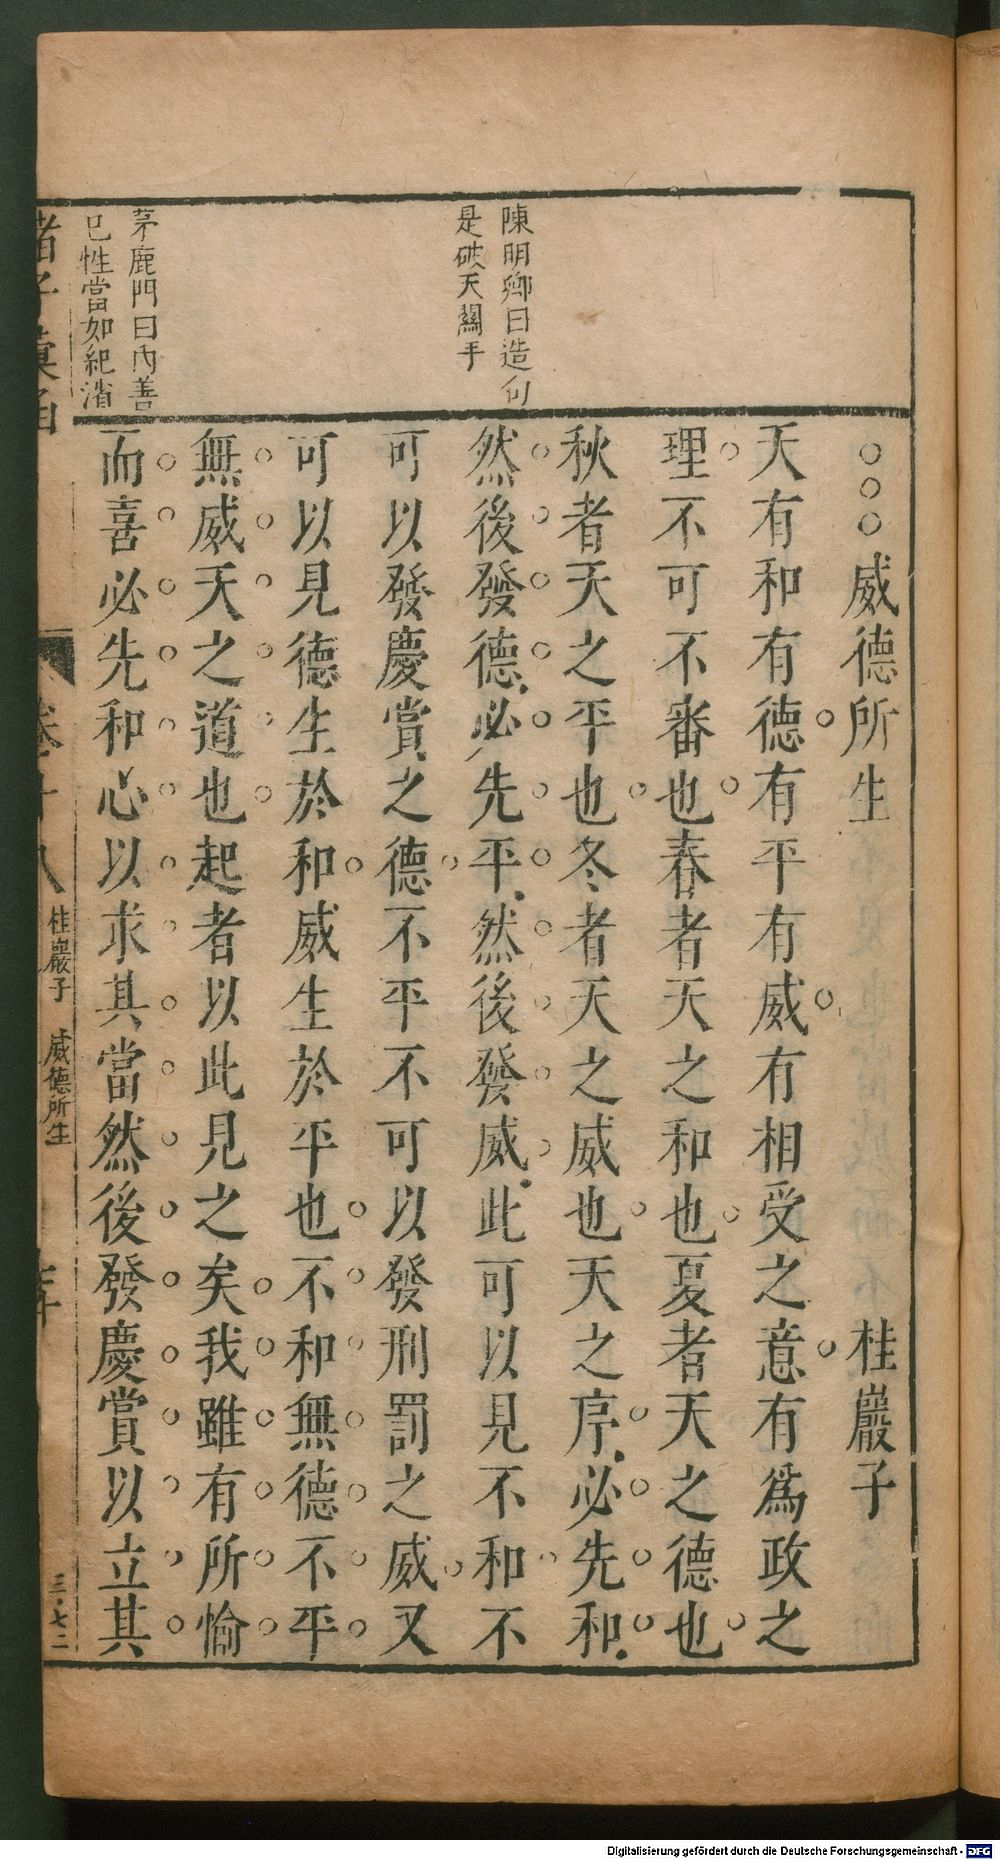 陳明卿曰造句
是破天關手
茅鹿門曰內善
已性當如紀渻
○○○威德所生 桂巖子
天有和有德有平有威有相受之意有爲政之
理不可不審也春者天之和也夏者天之德也
秋者天之平也冬者天之威也天之序必先和
然後發德必先平然後發威此可以見不和不
可以發慶賞之德不平不可以發刑罰之威又
可以見德生於和威生於平也不和無德不平
無威天之道也起者以此見之矣我雖有所愉
而喜必先和心以求其當然後發慶賞以立其
諸子彙函
卷十八
桂巖子 威德所生
三·七二
Digitalisierung gefördert durch die Deutsche Forschungsgemeinschaft - DFG